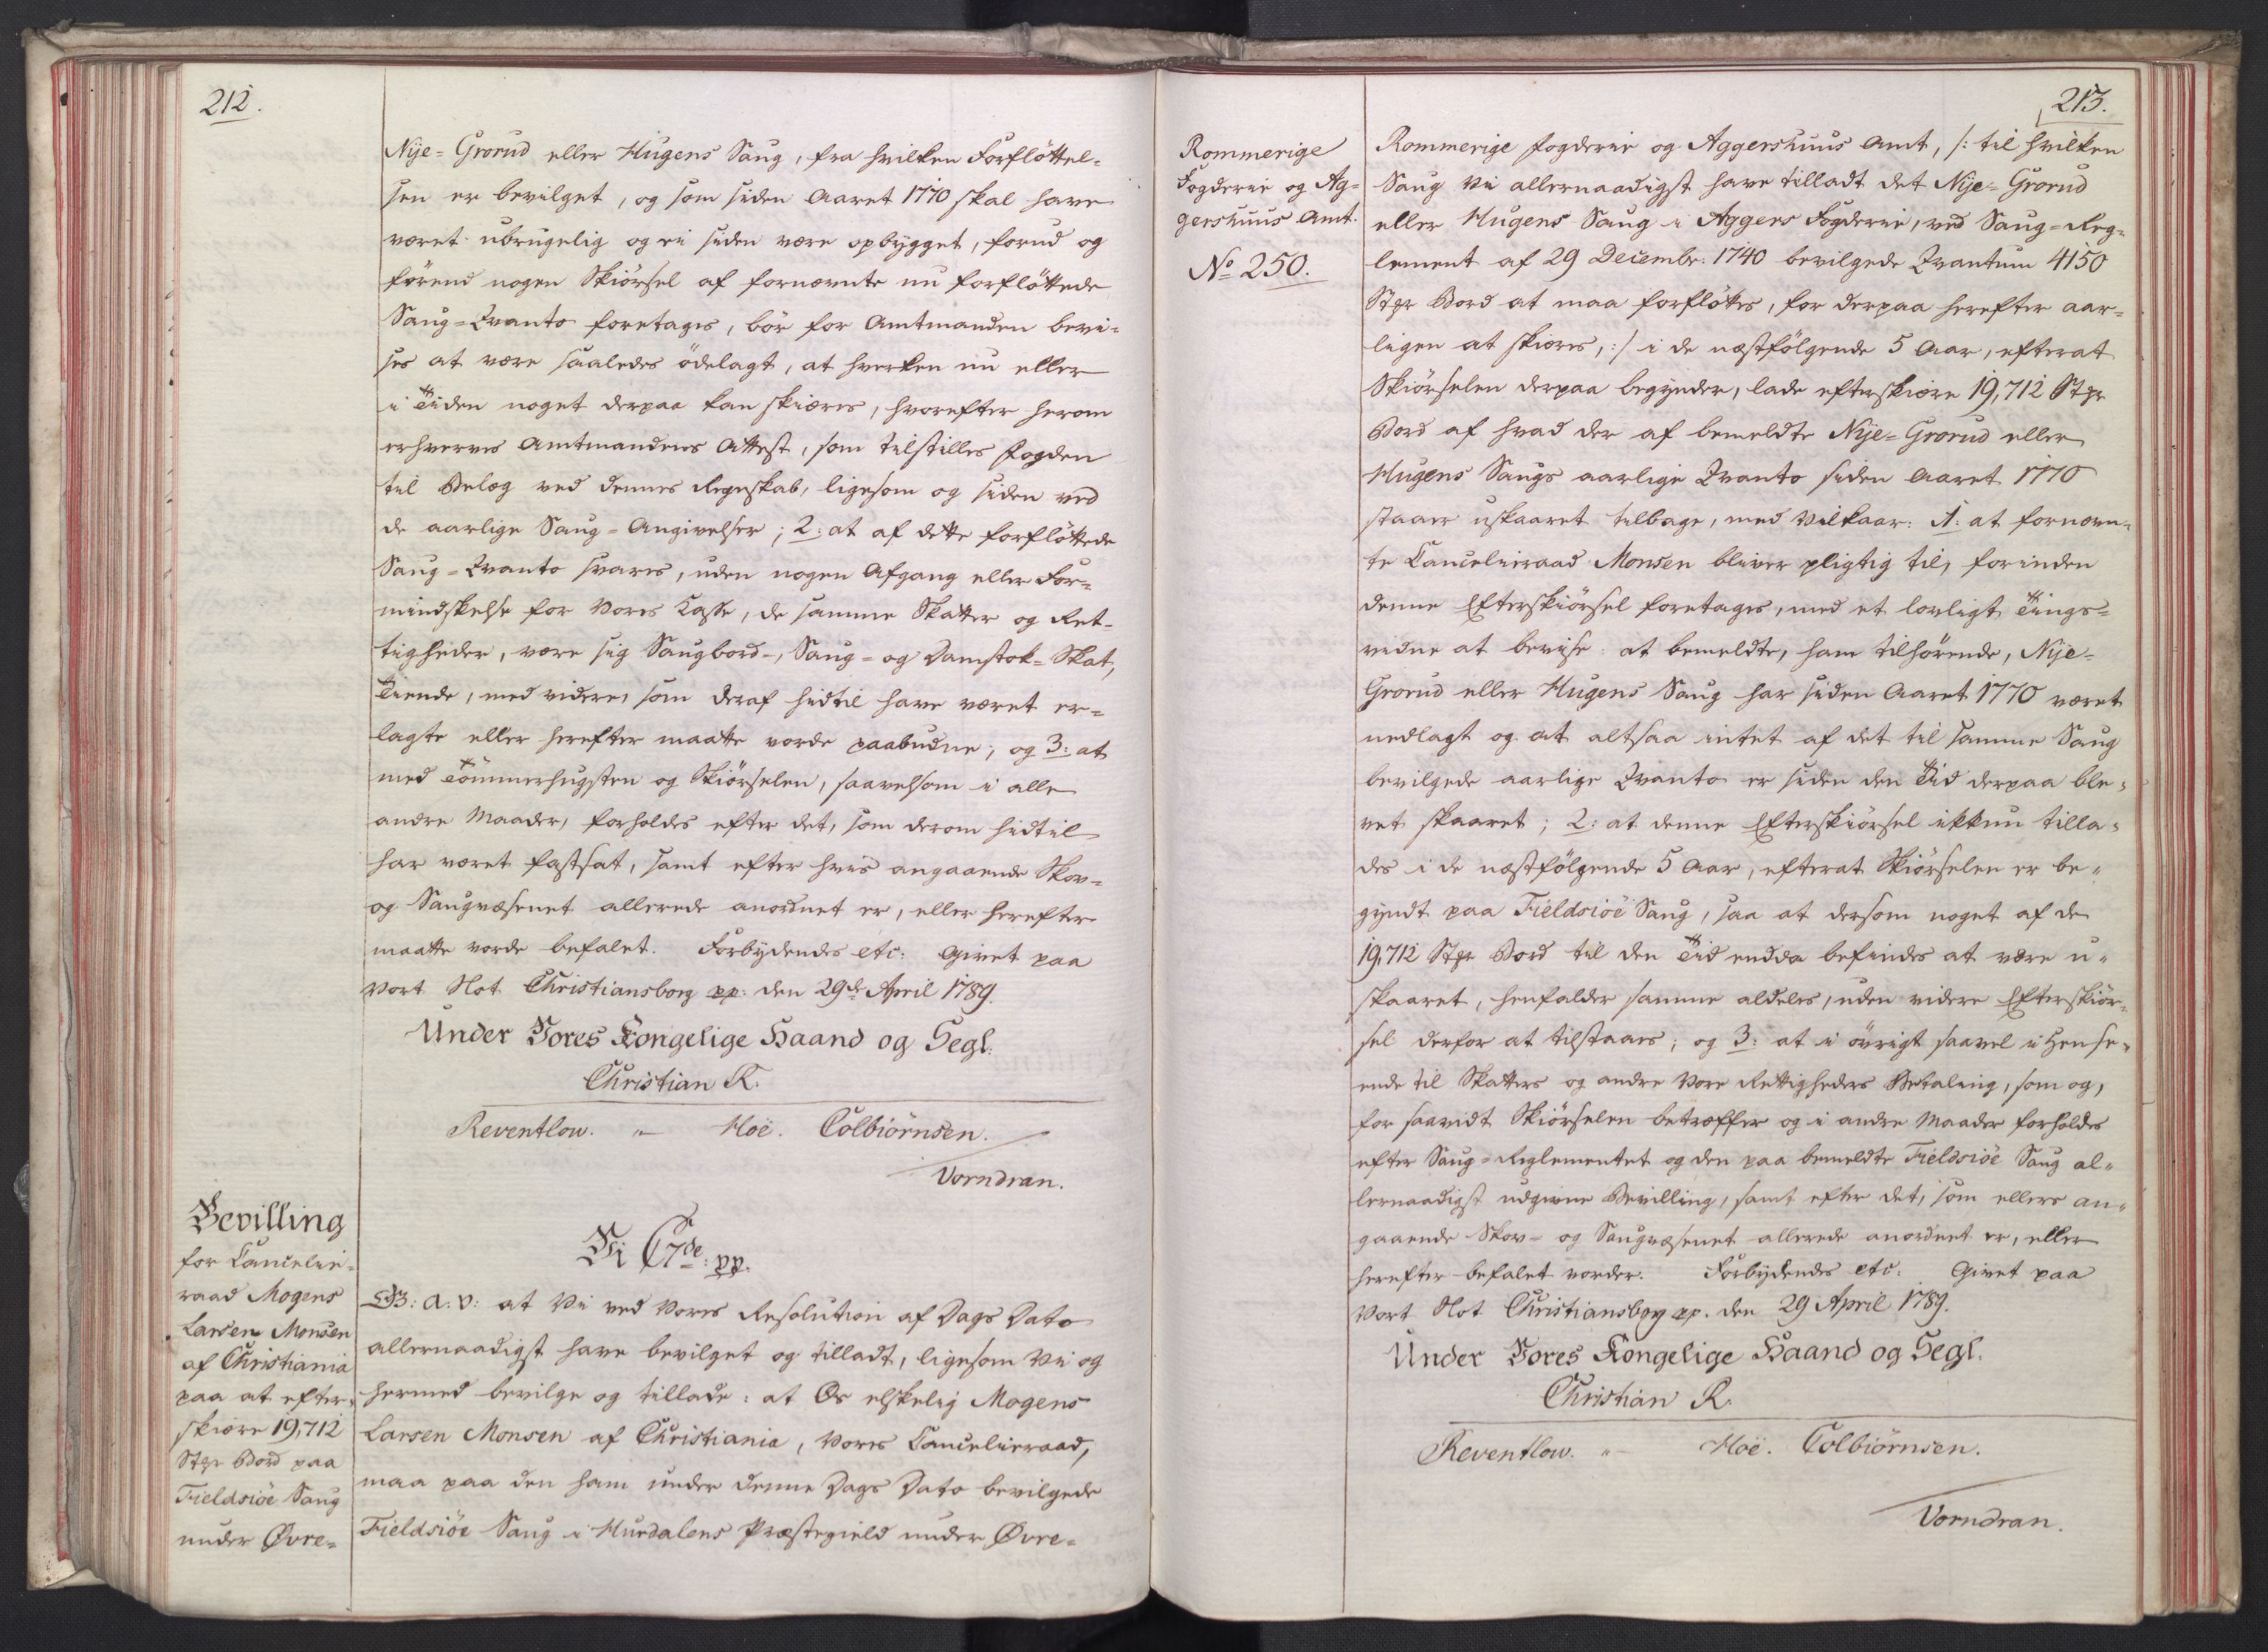 212.
Nÿe=Grorud eller Hugens Saug, fra hvilken Forfløttel=
sen er bevilget, og som siden Aaret 1770 skal have
været ubrugelig og ei siden være opbÿgget, forud og
førend nogen Skiørsel af fornævnte nu forfløttede
Saug=Qvanto foretages, bør for Amtmanden bevi=
ses at være saaledes ødelagt, at hverken nu eller
i Tiden noget derpaa kan skiæres, hvorefter herom
erhverves Amtmandens Attest, som tilstilles Fogden
til Belæg ved dennes Regnskab, ligesom og siden ved
de aarlige Saug=Angivelser; 2: at af dette forfløttede
Saug=Qvanto svares, uden nogen Afgang eller For=
mindskelse for Vores Casse, de samme Skatter og Ret=
tigheder, være sig Saugbord=, Saug= og Damstok=Skat,
Tiende, med videre, som deraf hidtil have været er=
lagte eller herefter maatte vorde paabudne; og 3: at
med Tømmerhugsten og Skiørselen, saavelsom i alle
andre Maader, forholdes efter det, som derom hidtil
har været fastsat, samt efter hvis angaaende Skov=
og Saugvæsenet allerede anordnet er, eller herefter
maatte vorde befalet. Forbÿdendes etc: Givet paa
Vort Slot Christiansborg pp: den 29de April 1789.
Under Vores Kongelige Haand og Segl.
Christian R.
Reventlow. „ — Hoë. Colbiørnsen.
Vorndran.
Bevilling
for Cancelie=
raad Mogens
Larsen Monsen
af Christiania
paa at efter=
skiære 19,712
Stpr Bord paa
Fieldsiöe Saug
under Øvre=
Vi C7de: pp.
G: A: V: at Vi ved Vores Resolution af Dags Dato
allernaadigst have bevilget og tilladt, ligesom Vi og
hermed bevilge og tillade: at Os elskelig Mogens
Larsen Monsen af Christiania, Vores Cancelieraad,
maa paa den ham under denne Dags Dato bevilgede
Fieldsiöe Saug i Hurdalens Præstegield under Øvre=
213.
Rommerige
Fogderie og Ag=
gershuus Amt.
No 250.
Rommerige Fogderie og Aggershuus Amt, /: til hvilken
Saug Vi allernaadigst have tilladt det Nÿe=Grorud
eller Hugens Saug i Aggers Fogderie, ved Saug=Reg=
lement af 29 Decembr: 1740 bevilgede Qvantum 4150
Stpr Bord at maa forfløttes, for derpaa herefter aar=
ligen at skiæres, :/ i de næstfølgende 5 Aar, efterat
Skiørselen derpaa begÿnder, lade efterskiære 19,712 Stpr
Bord af hvad der af bemeldte Nÿe=Grorud eller
Hugens Saugs aarlige Qvanto siden Aaret 1770
staaer uskaaret tilbage, med Vilkaar: 1: at fornævn=
te Cancelieraad Monsen bliver pligtig til, forinden
denne Efterskiørsel foretages, med et lovligt Tings=
vidne at bevise: at bemeldte, ham tilhørende, Nÿe=
Grorud eller Hugens Saug har siden Aaret 1770 været
nedlagt og at altsaa intet af det til samme Saug
bevilgede aarlige Qvanto er siden den Tid derpaa ble=
vet skaaret; 2: at denne Efterskiørsel ikkun tilla=
des i de næstfølgende 5 Aar, efterat Skiørselen er be=
gÿndt paa Fieldsiöe Saug, saa at dersom noget af de
19,712 Stpr Bord til den Tid endda befindes at være u=
skaaret, henfalder samme aldeles, uden videre Efterskiør=
sel derfor at tilstaaes; og 3: at i øvrigt saavel i Hense=
ende til Skatters og andre Vore Rettigheders Betaling, som og,
for saavidt Skiørselen betræffer og i andre Maader forholdes
efter Saug=Reglementet og den paa bemeldte Fieldsiöe Saug al=
lernaadigst udgivne Bevilling, samt efter det, som ellers an=
gaaende Skov= og Saugvæsenet allerede anordnet er, eller
herefter befalet vorder. Forbÿdendes etc: Givet paa
Vort Slot Christiansborg pp. den 29 April 1789.
Under Vores Kongelige Haand og Segl.
Christian R.
Reventlow. „ — Hoë. Colbiørnsen.
Vorndran.